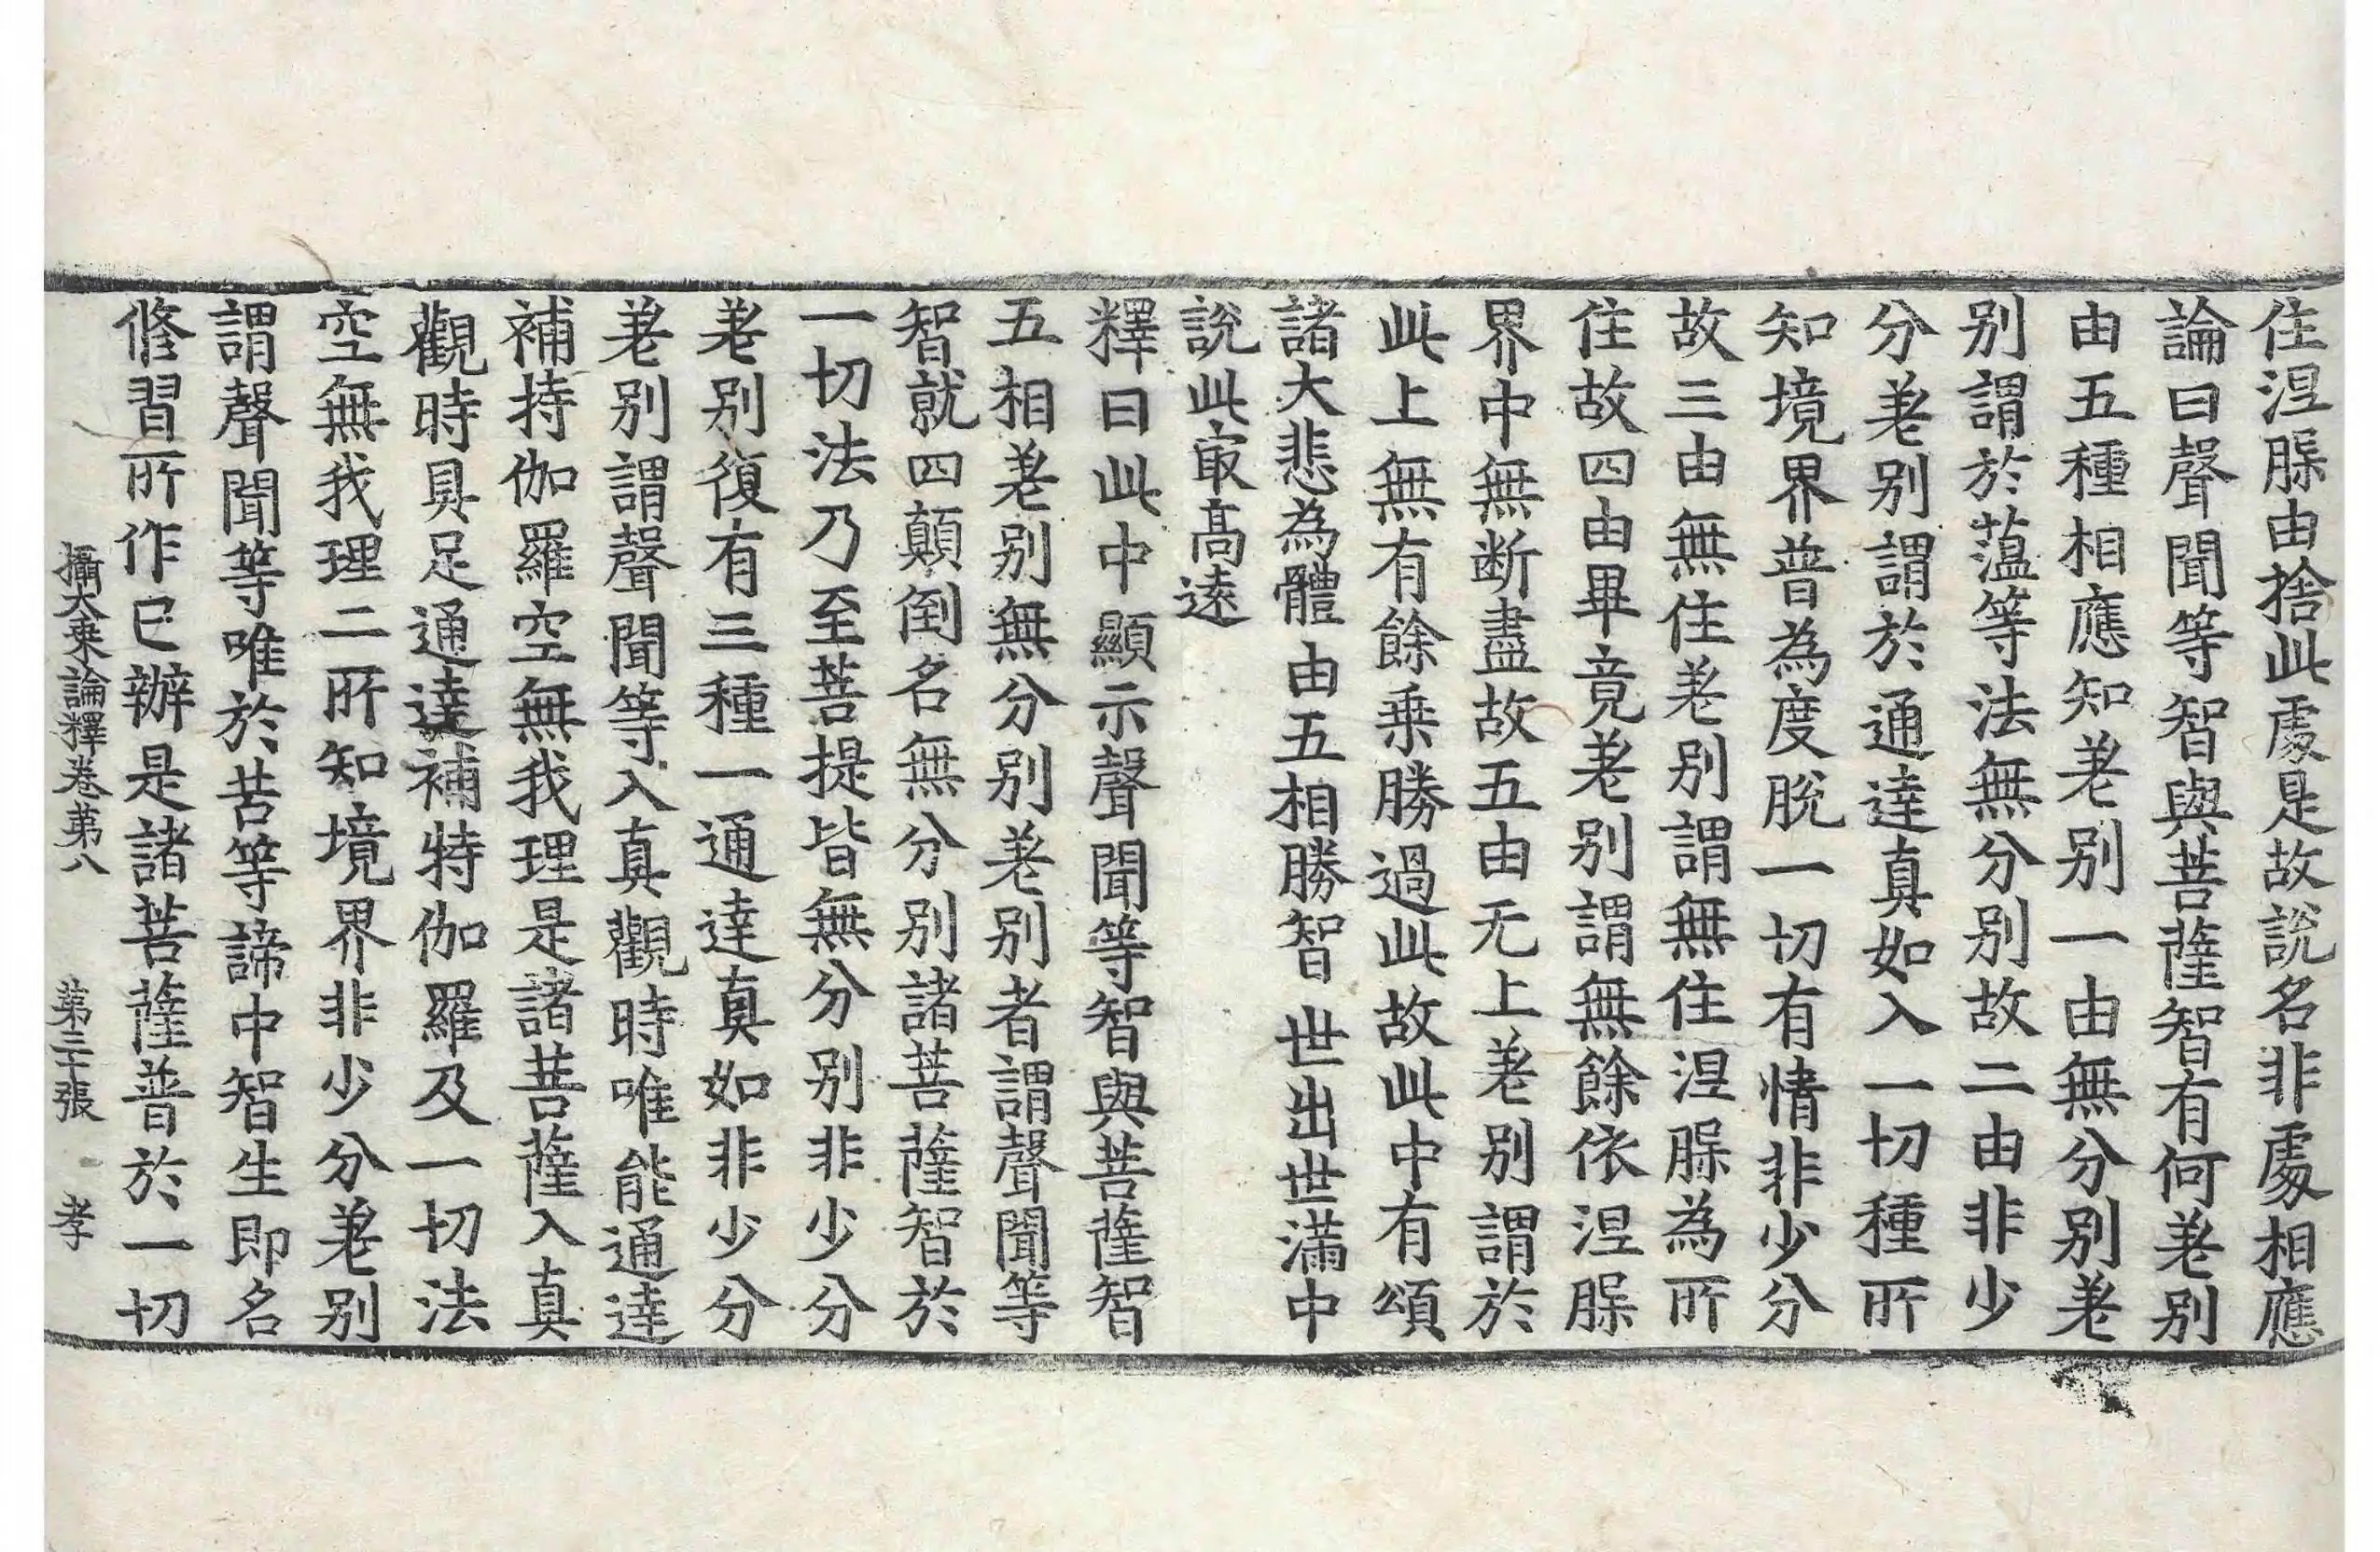 住涅槃由捨此處是故說名非處相應
論曰聲聞等智與菩薩智有何差别
由五種相應知差别一由無分别差
别謂於薀等法無分别故二由非少
分差别謂於通達真如入一切種所
知境界普為度脫一切有情非少分
故三由無住差别謂無住涅槃為所
住故四由畢竟差别謂無餘依涅槃
界中無断盡故五由无上差别謂於
此上無有餘乗勝過此故此中有頌
諸大悲為體 由五相勝智 世出世滿中
說此㝡髙遠
釋曰此中顯示聲聞等智與菩薩智
五相差别無分别差别者謂聲聞等
智就四顛倒名無分别諸菩薩智於
一切法乃至菩提皆無分别非少分
差别復有三種一通達真如非少分
差别謂聲聞等入真觀時唯能通達
補持伽羅空無我理是諸菩薩入真
觀時具足通達補特伽羅及一切法
空無我理二所知境界非少分差别
謂聲聞等唯於苦等諦中智生即名
修習所作已辦是諸菩薩普於一切
攝大乗論釋卷苐八 苐三十張 孝